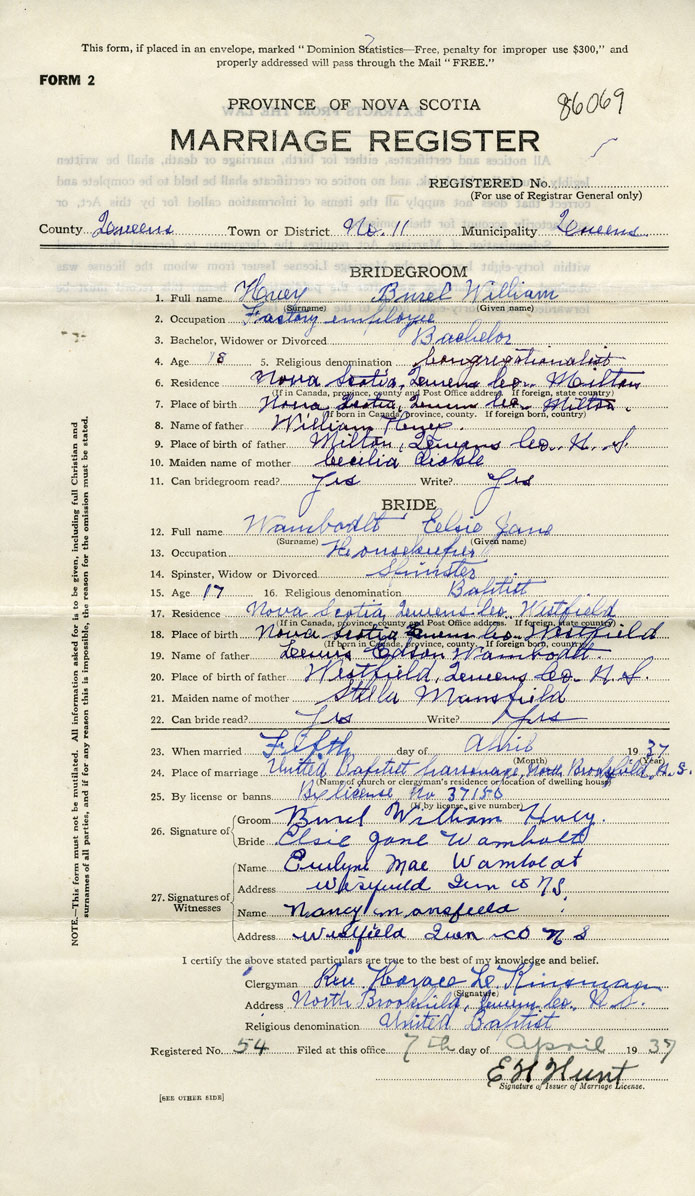 This form, if placed in an envelope, marked "Dominion Statistics—Free, penalty for improper use $300," and
properly addressed will pass through the Mail "FREE."
FORM 2
PROVINCE OF NOVA SCOTIA
86069
MARRIAGE REGISTER
REGISTERED No.
(For use of Registrar General only)
County Queens Town or District No. 11 Municipality Queens
BRIDEGROOM
1. Full name Huey Burel William
(Surname) (Given name)
2. Occupation Factory employee
3. Bachelor, Widower or Divorced Bachelor
4. Age 18 5. Religious denomination Congregationalist
6. Residence Nova Scotia, Queens Co. Milton
(If in Canada, province, county and Post Office address. If foreign, state country)
7. Place of birth Nova Scotia, Queens Co. Milton.
(If born in Canada, province, county. If foreign born, country)
8. Name of father William Huey.
9. Place of birth of father Milton, Queens Co. N. S.
10. Maiden name of mother Cecilia
11. Can bridegroom read? Yes Write? Yes
BRIDE
12. Full name Wamboldt Elsie Jane
(Surname) (Given name)
13. Occupation Housekeeper
14. Spinster, Widow or Divorced Spinster
15. Age 17 16. Religious denomination Baptist
17. Residence Nova Scotia Queens Co. Westfield
(If in Canada, province, county and Post Office address. If foreign, state country)
18. Place of birth Nova Scotia Queens Co. Westfield
(If born in Canada, province, county. If foreign born, country)
19. Name of father Edson Wamboldt.
20. Place of birth of father Westfield, Queens Co. N.S.
21. Maiden name of mother Stella Mansfield
22. Can bride read? Yes Write? Yes
23. When married Fifth day of April 1937
(Month) (Year)
24. Place of marriage United Baptist Parsonage, North Brookfield, N.S.
(Name of church or clergyman's residence or location of dwelling house)
25. By license or banns By license, No 37150
(If by license, give number)
26. Signature of
Groom Burel William Huey.
Bride Elsie Jane Wamboldt
27. Signatures of Witnesses
Name Evelyne Mae Wamboldt
Address Westfield Quen co NS
Name Nancy Mansfield
Address Westfield Quen co N S
I certify the above stated particulars are true to the best of my knowledge and belief.
Clergyman Rev. Horace L. Kinsman
(Signature)
Address North Brookfield, Queens Co., N.S.
Religious denomination United Baptist
Registered No. 54 Filed at this office 7th day of April 1937
E H Hunt
Signature of Issuer of Marriage License.
[SEE OTHER SIDE]
NOTE.—This form must not be mutilated. All information asked for is to be given, including full Christian and
surnames of all parties, and if for any reason this is impossible, the reason for the omission must be stated.